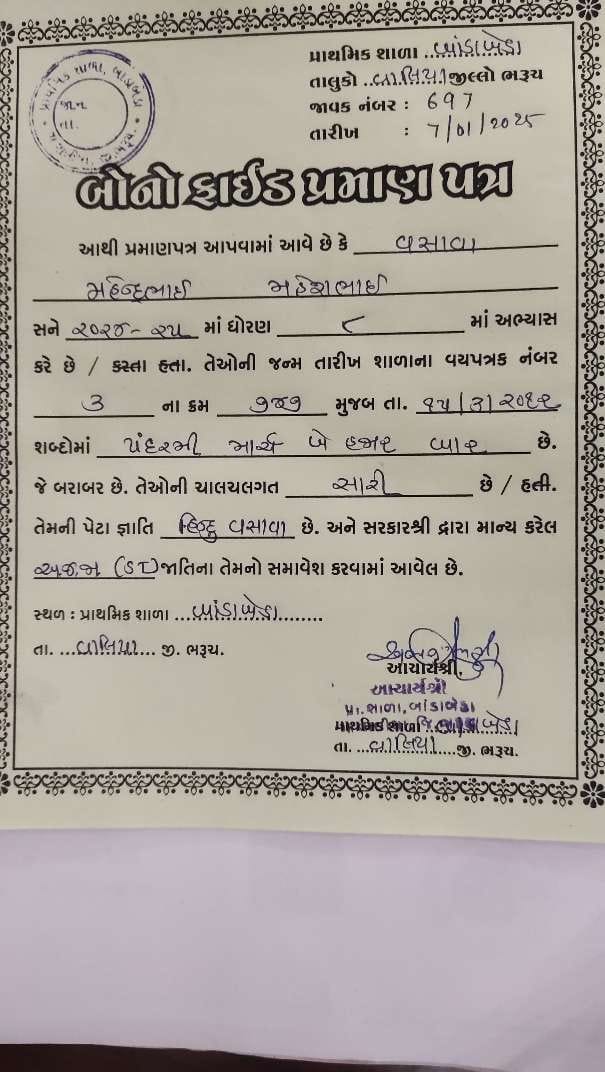 પ્રાથમિક શાળા, બાંડાબેડા
જા.ન.
તા.
પ્રાથમિક શાળા ..બાંડાબેડા
તાલુકો ..વાલિયા જીલ્લો ભરૂચ
જાવક નંબર : 697
તારીખ : 7/01/2025
બોનોફાઈડ પ્રમાણ પત્ર
આથી પ્રમાણપત્ર આપવામાં આવે છે કે વસાવા
મહેન્દ્રભાઈ મહેશભાઈ
સને ૨૦૨૪-૨૫ માં ધોરણ ૮ માં અભ્યાસ
કરે છે / કરતા હતા. તેઓની જન્મ તારીખ શાળાના વયપત્રક નંબર
૩ ના ક્રમ ૭૪૭ મુજબ તા. ૧૫/૩/૨૦૧૨
શબ્દોમાં પંદરમી માર્ચ બે હજાર બાર છે.
જે બરાબર છે. તેઓની ચાલચલગત સારી છે / હતી.
તેમની પેટા જ્ઞાતિ હિન્દુ વસાવા છે. અને સરકારશ્રી દ્વારા માન્ય કરેલ
અ.જ.જા (ST) જાતિના તેમનો સમાવેશ કરવામાં આવેલ છે.
સ્થળ : પ્રાથમિક શાળા ...બાંડાબેડા........
તા. ...વાલિયા... જી. ભરૂચ.
આચાર્યશ્રી.
આચાર્યશ્રી
પ્રા.શાળા, બાંડાબેડા
પ્રાથમિક શાળા ..બાંડાબેડા
તા. ...વાલિયા....જી. ભરૂચ.